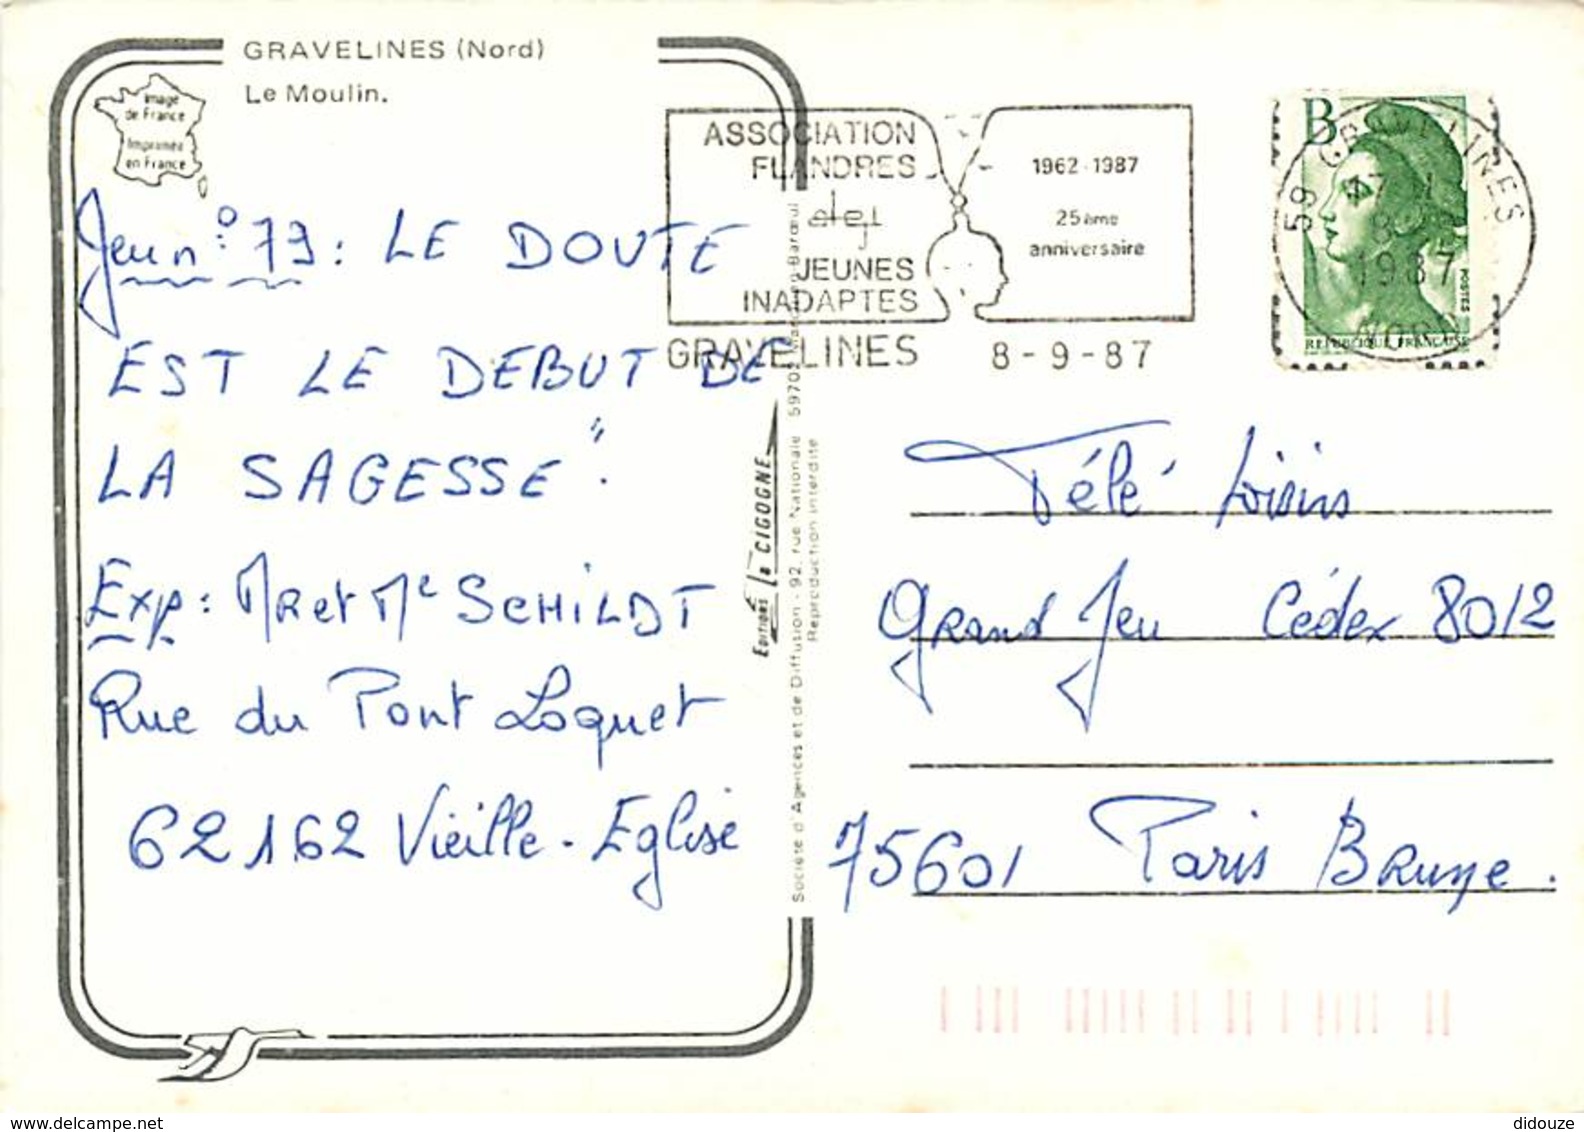 GRAVELINES (Nord)
Le Moulin.
Image
de France
Imprimée
en France
Jeu n° 79 : LE DOUTE
EST LE DEBUT DE
LA SAGESSE ".
Exp : MR et Me SCHILDT
Rue du Pont Loquet
62162 Vieille-Eglise
ASSOCIATION
FLANDRES
des
JEUNES
INADAPTES
1962-1987
25ème
anniversaire
GRAVELINES 8-9-87
B
POSTES
REPUBLIQUE FRANÇAISE
59 GRAVELINES
1987
NORD
EDITIONS La CIGOGNE
Société d'Agences et de Diffusion - 92, rue Nationale
Reproduction interdite
Télé Loisirs
Grand Jeu Cédex 8012
75601 Paris Brune.
didouze